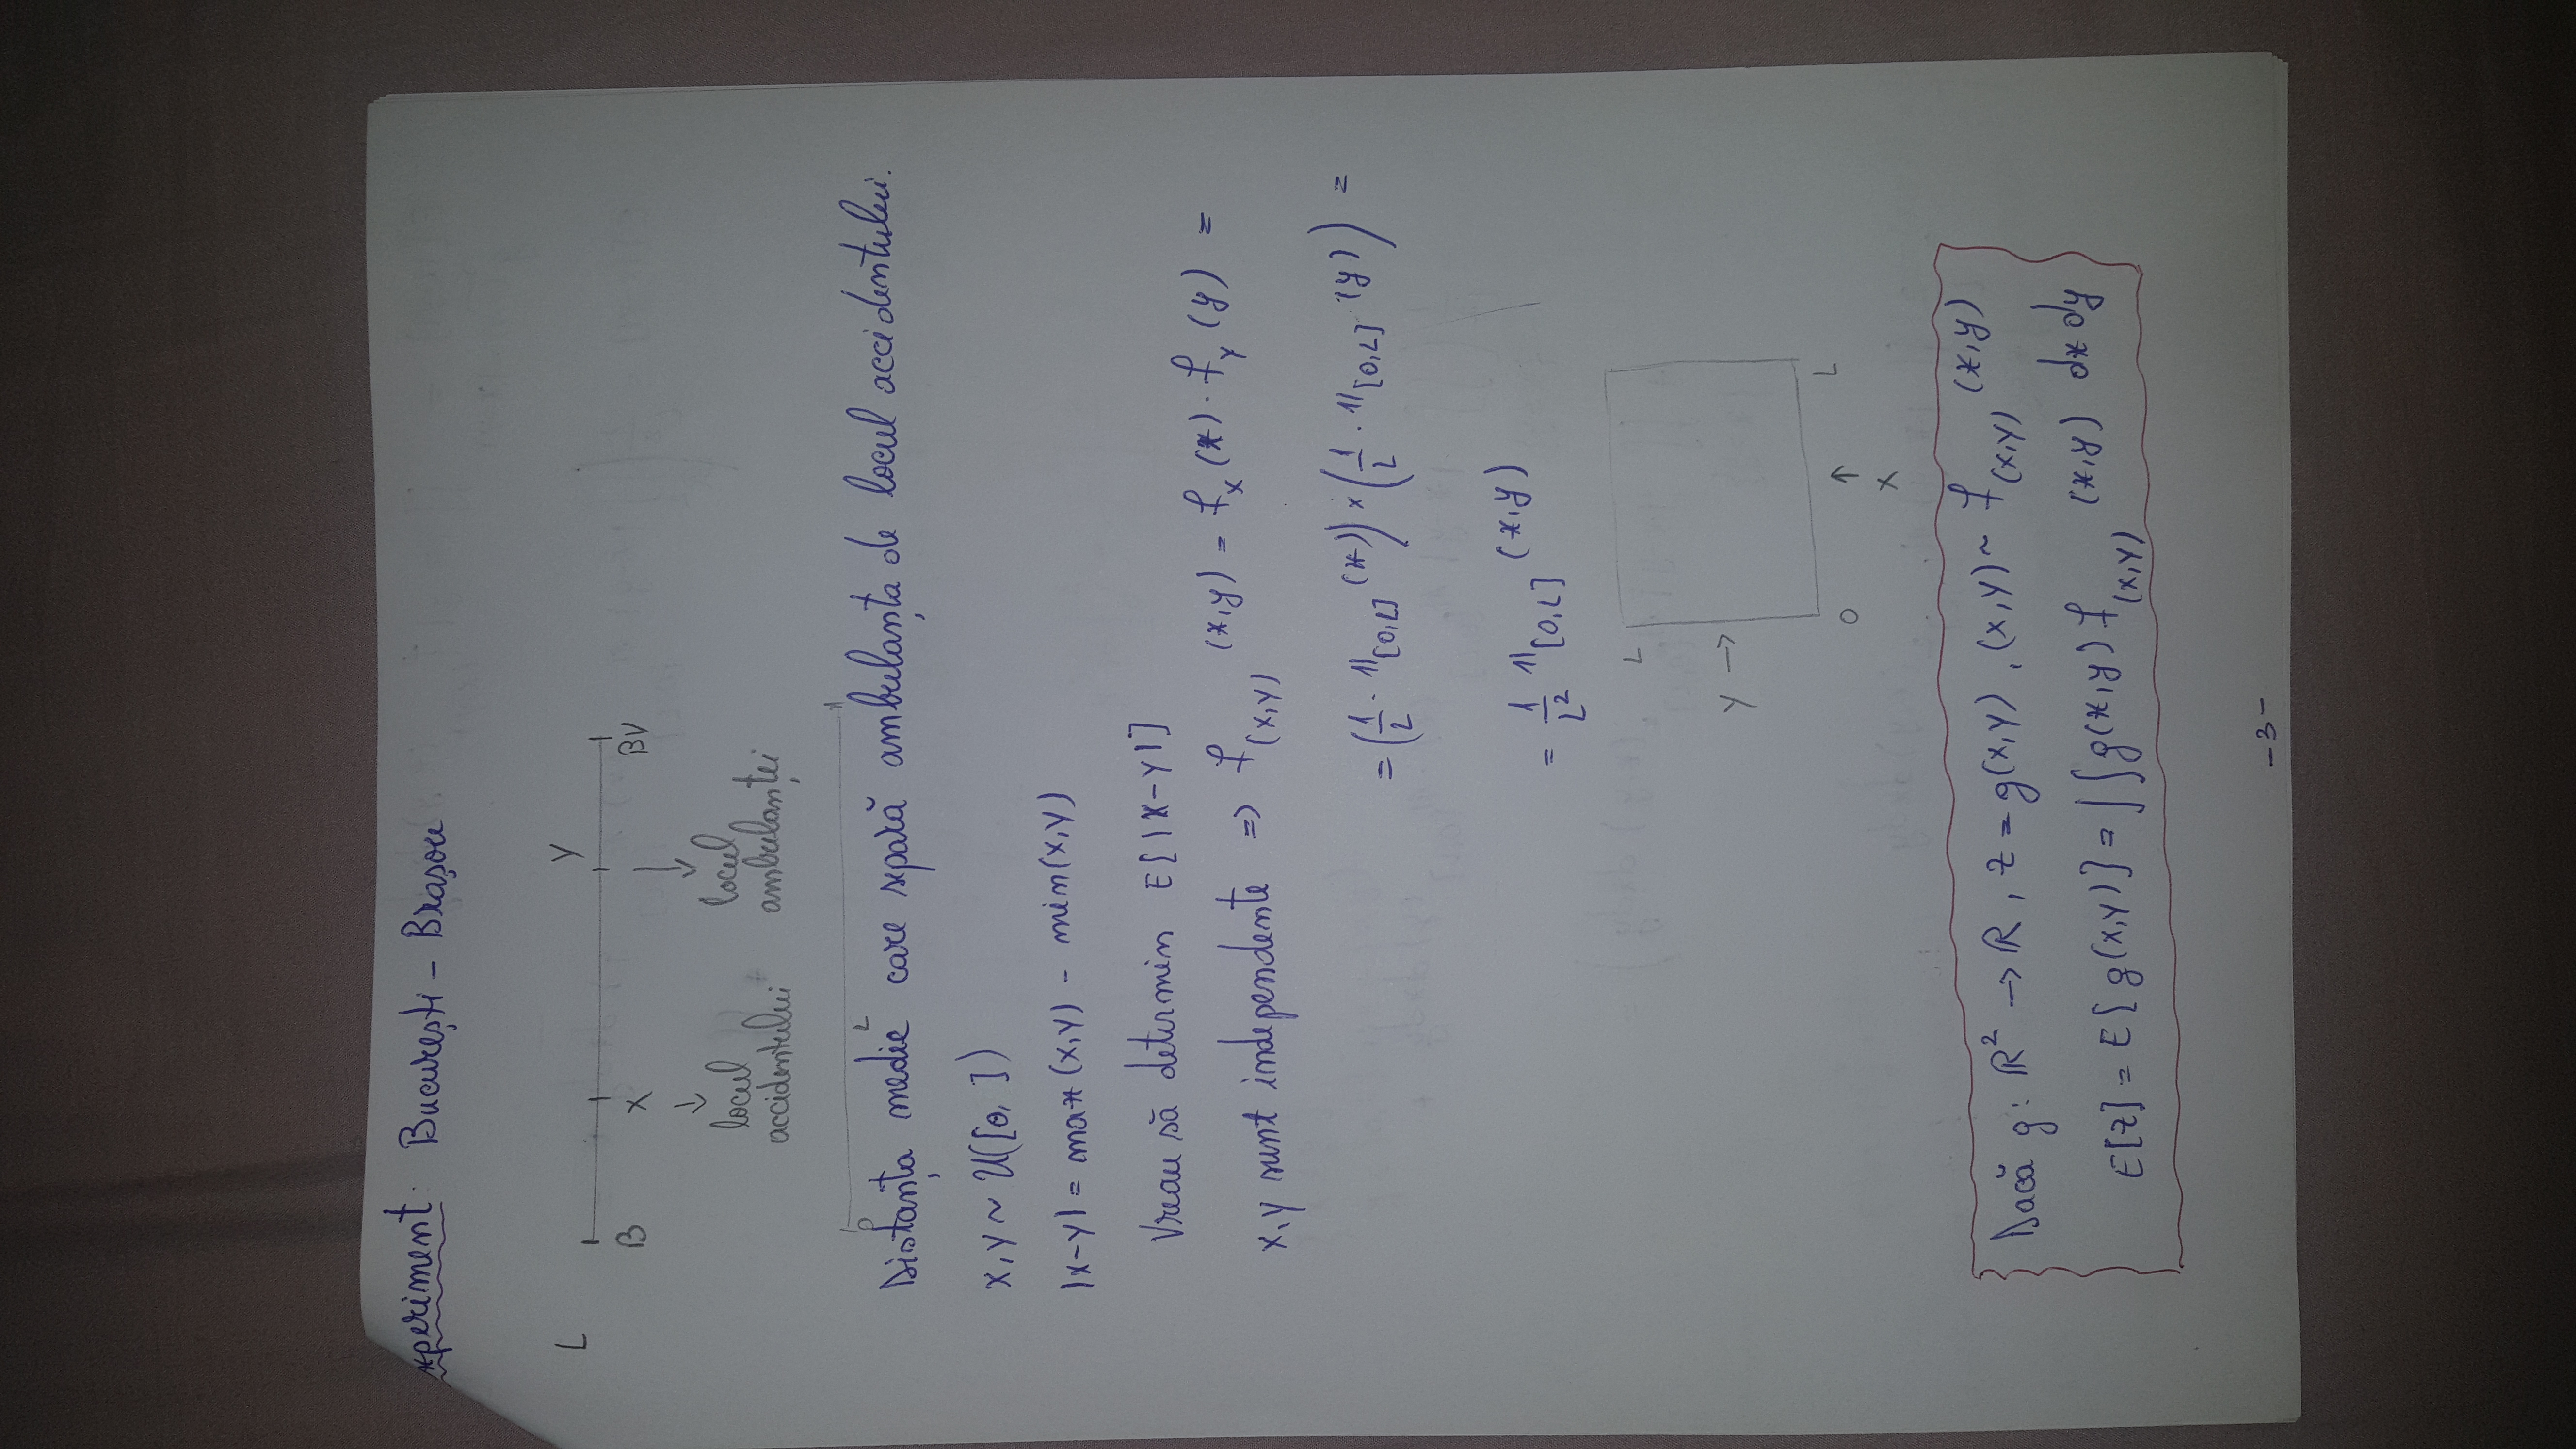 xperiment: București - Brașov
L
Y
B X BV
locul accidentului
locul ambulanței
L
Distanța medie care separă ambulanța de locul accidentului.
X,Y ~ U([0, ])
|X-Y| = max(X,Y) - min(X,Y)
Vreau să determin E[|X-Y|]
X,Y sunt independente => f_(X,Y) (x,y) = f_X(x) · f_Y(y) =
= (1/L · 1_[0,L] (x)) × (1/L · 1_[0,L] (y)) =
= 1/L² 1_[0,L] (x,y)
L
Y →
0 ↑ L
X
Dacă g: ℝ² → ℝ, Z = g(X,Y), (X,Y) ~ f_(X,Y) (x,y)
E[Z] = E[g(X,Y)] = ∫∫ g(x,y) f_(X,Y) (x,y) dx dy
- 3 -